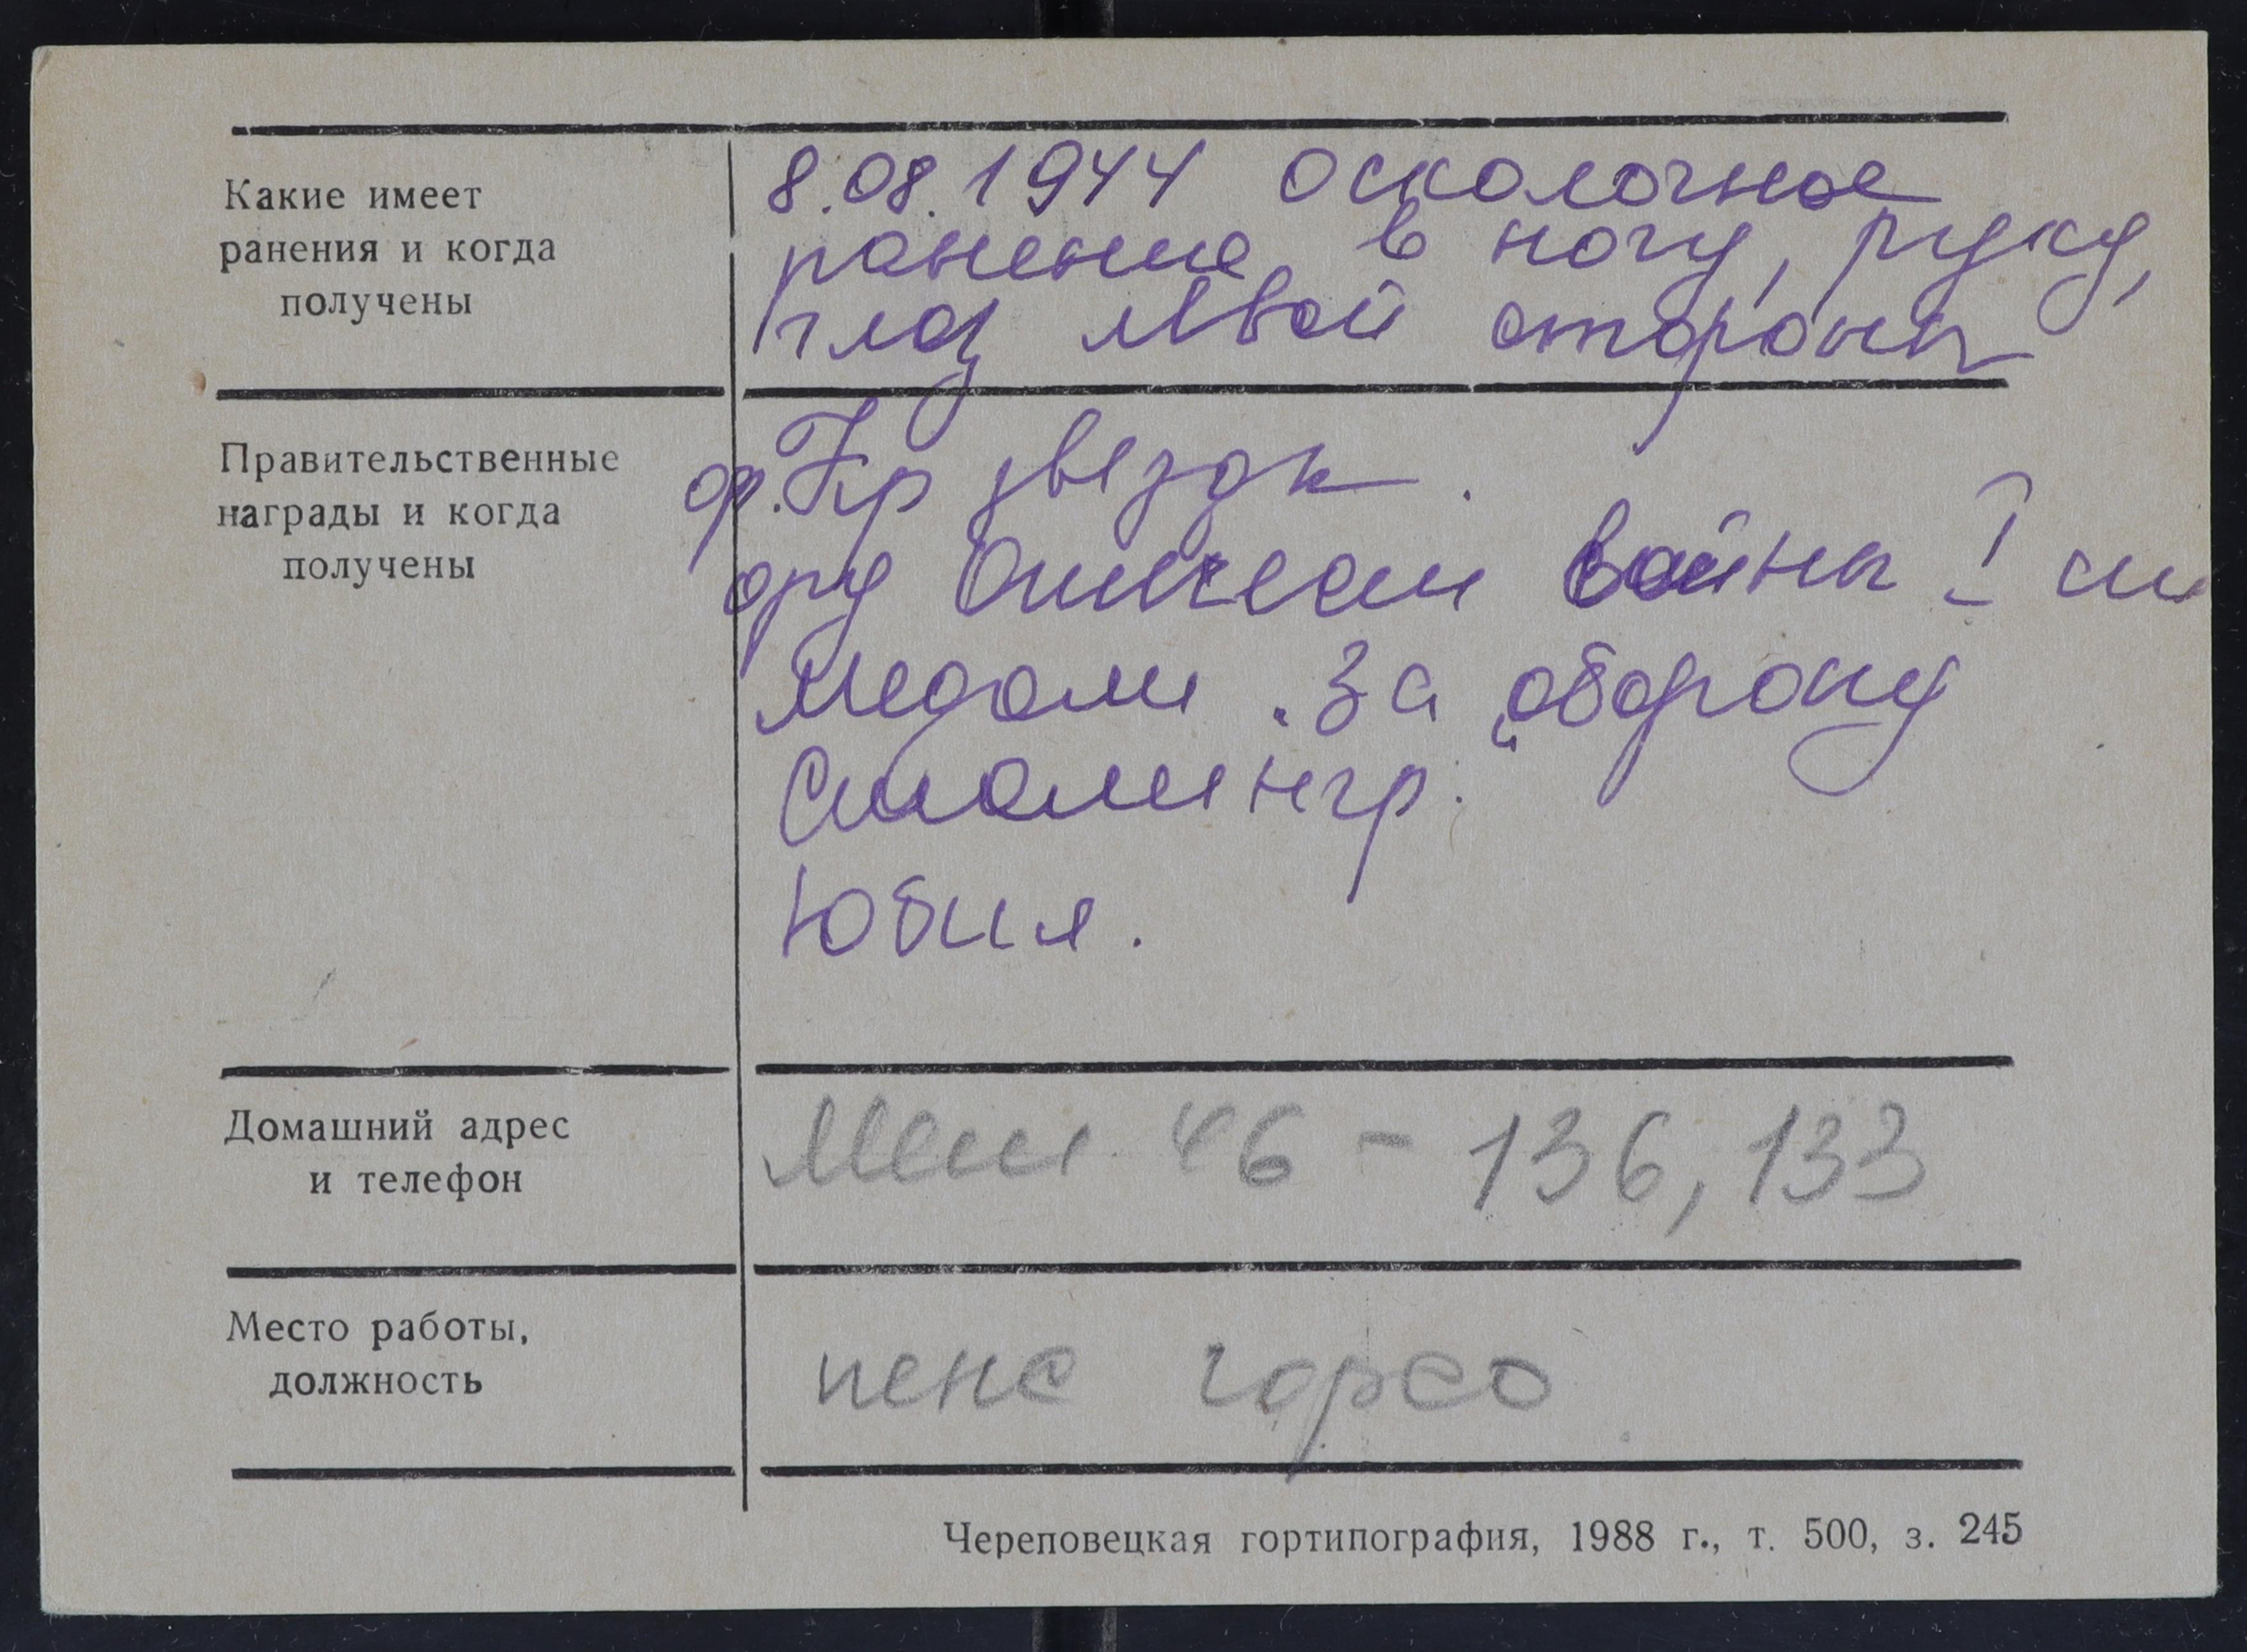 Какие имеет
ранения и когда
получены
8.08.1944 осколочное
ранение в ногу, руку,
глаз левой стороны
Правительственные
награды и когда
получены
ор. Кр звезды.
орд Отечеств войны I ст
Медали "За оборону
Сталингр.
Юбил.
Домашний адрес
и телефон
46 - 136, 133
Место работы,
должность
пенс горсо
Череповецкая гортипография, 1988 г., т. 500, з. 245